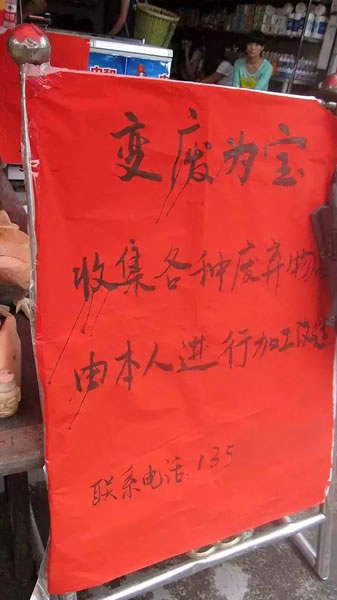 变废为宝
收集各种废弃物
由本人进行加工改造
联系电话:135